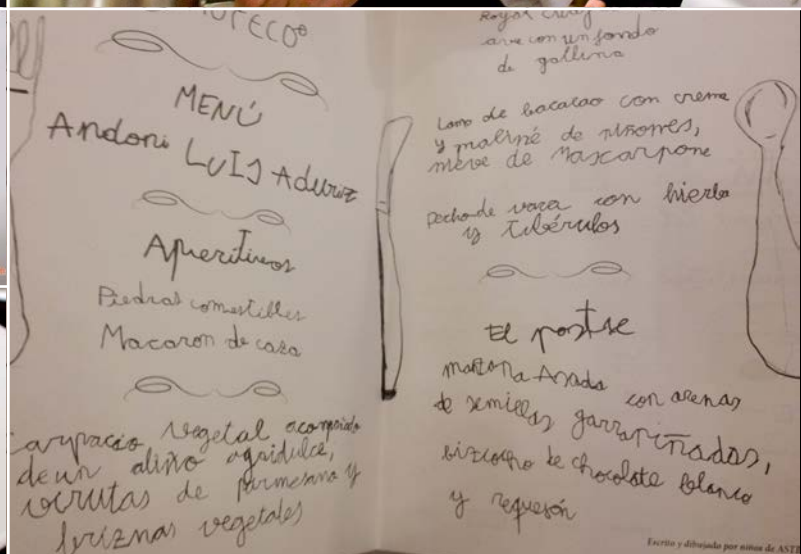 MENÚ
Andoni LUIS Aduriz
Aperitivos
Piedras comestibles
Macaron de caza
arpacio vegetal acompañado
de un aliño agridulce,
virutas de parmesano y
briznas vegetales
Royal
ave con un fondo
de gallina
Lomo de bacalao con crema
y praliné de piñones,
nieve de Mascarpone
Pecho de vaca con hierba
y tubérculos
El postre
manzana Asada con arenas
de semillas garrapiñadas,
bizcocho de chocolate blanco
y requesón
Escrito y dibujado por niños de AST